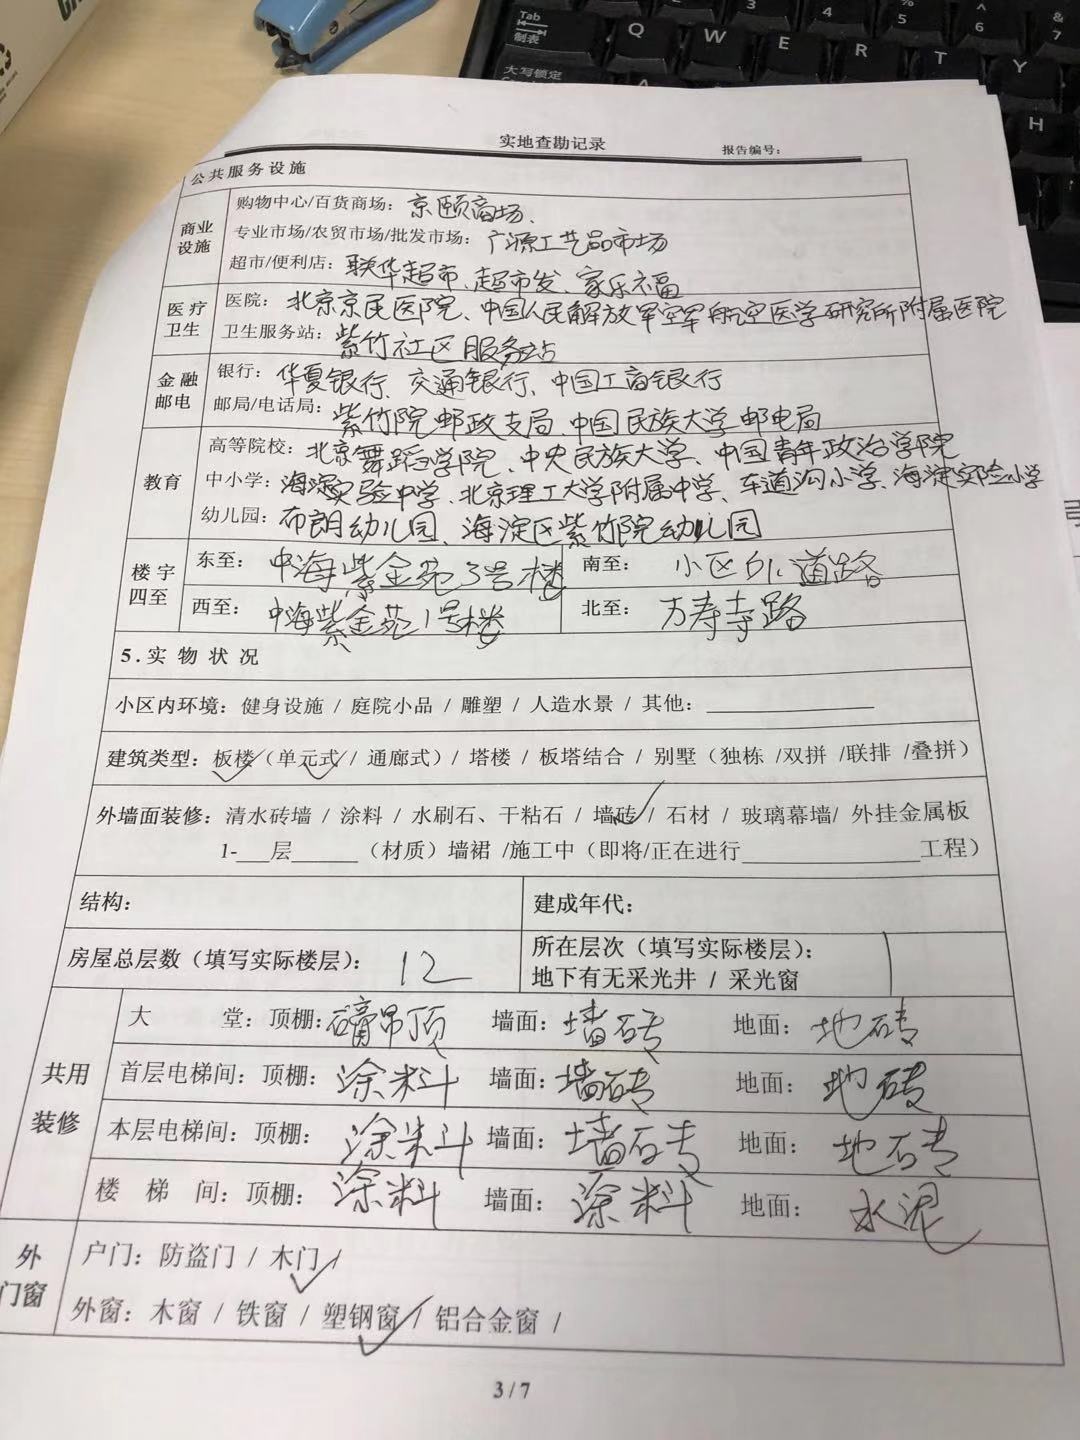 Tab
制表
Q W E R T Y
4 5 6 & 7
大写锁定
H
实地查勘记录
报告编号：
公共服务设施
商业设施
购物中心/百货商场：京颐商场、
专业市场/农贸市场/批发市场：广源工艺品市场
超市/便利店：联华超市、超市发、家乐福
医疗卫生
医院：北京京民医院、中国人民解放军空军航空医学研究所附属医院
卫生服务站：紫竹社区服务站
金融邮电
银行：华夏银行、交通银行、中国工商银行
邮局/电话局：紫竹院邮政支局、中国民族大学邮电局
教育
高等院校：北京舞蹈学院、中央民族大学、中国青年政治学院
中小学：海淀实验中学、北京理工大学附属中学、车道沟小学、海淀实验小学
幼儿园：布朗幼儿园、海淀区紫竹院幼儿园
楼宇四至
东至：中海紫金苑3号楼 南至：小区内道路
西至：中海紫金苑1号楼 北至：万寿寺路
5.实物状况
小区内环境：健身设施 / 庭院小品 / 雕塑 / 人造水景 / 其他：
建筑类型：板楼✓（单元式✓/ 通廊式）/ 塔楼 / 板塔结合 / 别墅（独栋 /双拼 /联排 /叠拼）
外墙面装修：清水砖墙 / 涂料 / 水刷石、干粘石 / 墙砖✓/ 石材 / 玻璃幕墙/ 外挂金属板
1-__层______（材质）墙裙 /施工中（即将/正在进行________________工程）
结构： 建成年代：
房屋总层数（填写实际楼层）：12 所在层次（填写实际楼层）：1
地下有无采光井 / 采光窗
共用装修
大堂：顶棚：膏吊顶 墙面：墙砖 地面：地砖
首层电梯间：顶棚：涂料 墙面：墙砖 地面：地砖
本层电梯间：顶棚：涂料 墙面：墙砖 地面：地砖
楼梯间：顶棚：涂料 墙面：涂料 地面：水泥
外门窗
户门：防盗门 / 木门✓/
外窗：木窗 / 铁窗 / 塑钢窗✓/ 铝合金窗 /
3 / 7